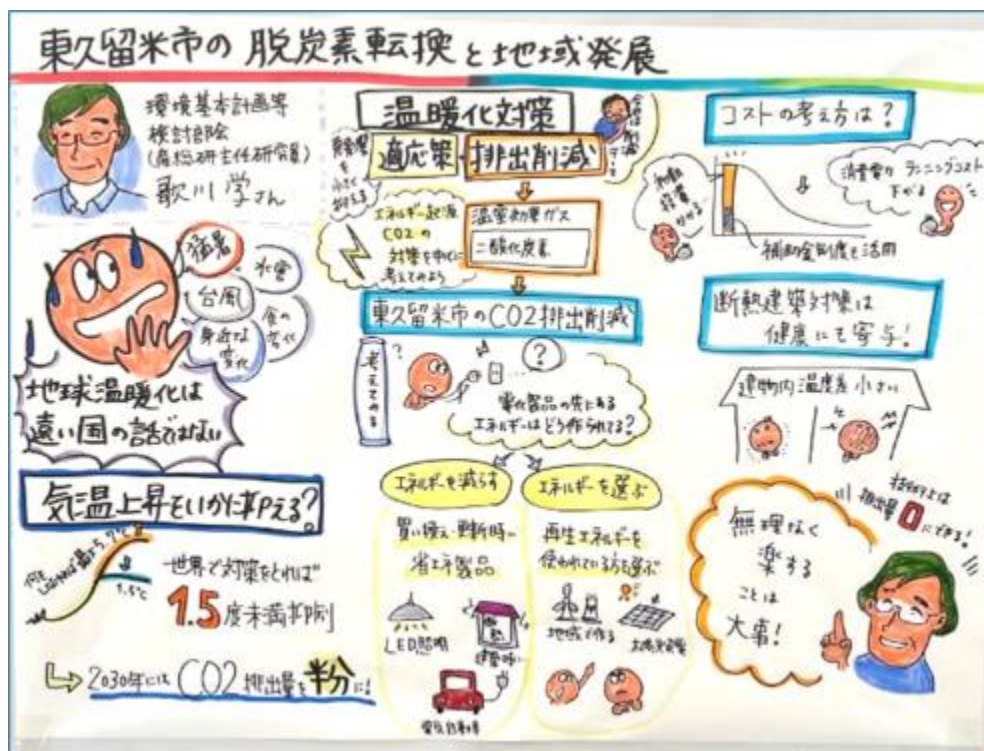 東久留米市の脱炭素転換と地域発展
環境基本計画等
検討部会
(産総研主任研究員)
歌川 学さん
猛暑
水害
台風
食の変化
身近な変化
地球温暖化は
遠い国の話ではない
気温上昇をいかに抑える?
1.5℃
世界で対策をとれば
1.5度未満抑制
2030年にはCO2排出量を半分に!
温暖化対策
適応策
排出削減
悪影響を
小さく
抑える
エネルギー起源
CO2の
対策を中心に
考えてみよう
温室効果ガス
二酸化炭素
東久留米市のCO2排出削減
考えてみる
?
?
電化製品の先にある
エネルギーはどう作られてる?
エネルギーを減らす
買い換え・更新時に
省エネ製品
LED照明
電気自動車
エネルギーを選ぶ
再生エネルギーを
使われている方を選ぶ
地域で作る
太陽光発電
コストの考え方は?
初期
投資
かかる
消費電力 ランニングコスト
下がる
補助金制度も活用
断熱建築対策は
健康にも寄与!
建物内温度差小さい
無理なく
楽する
ことは
大事!
技術上は
排出量0にできる!